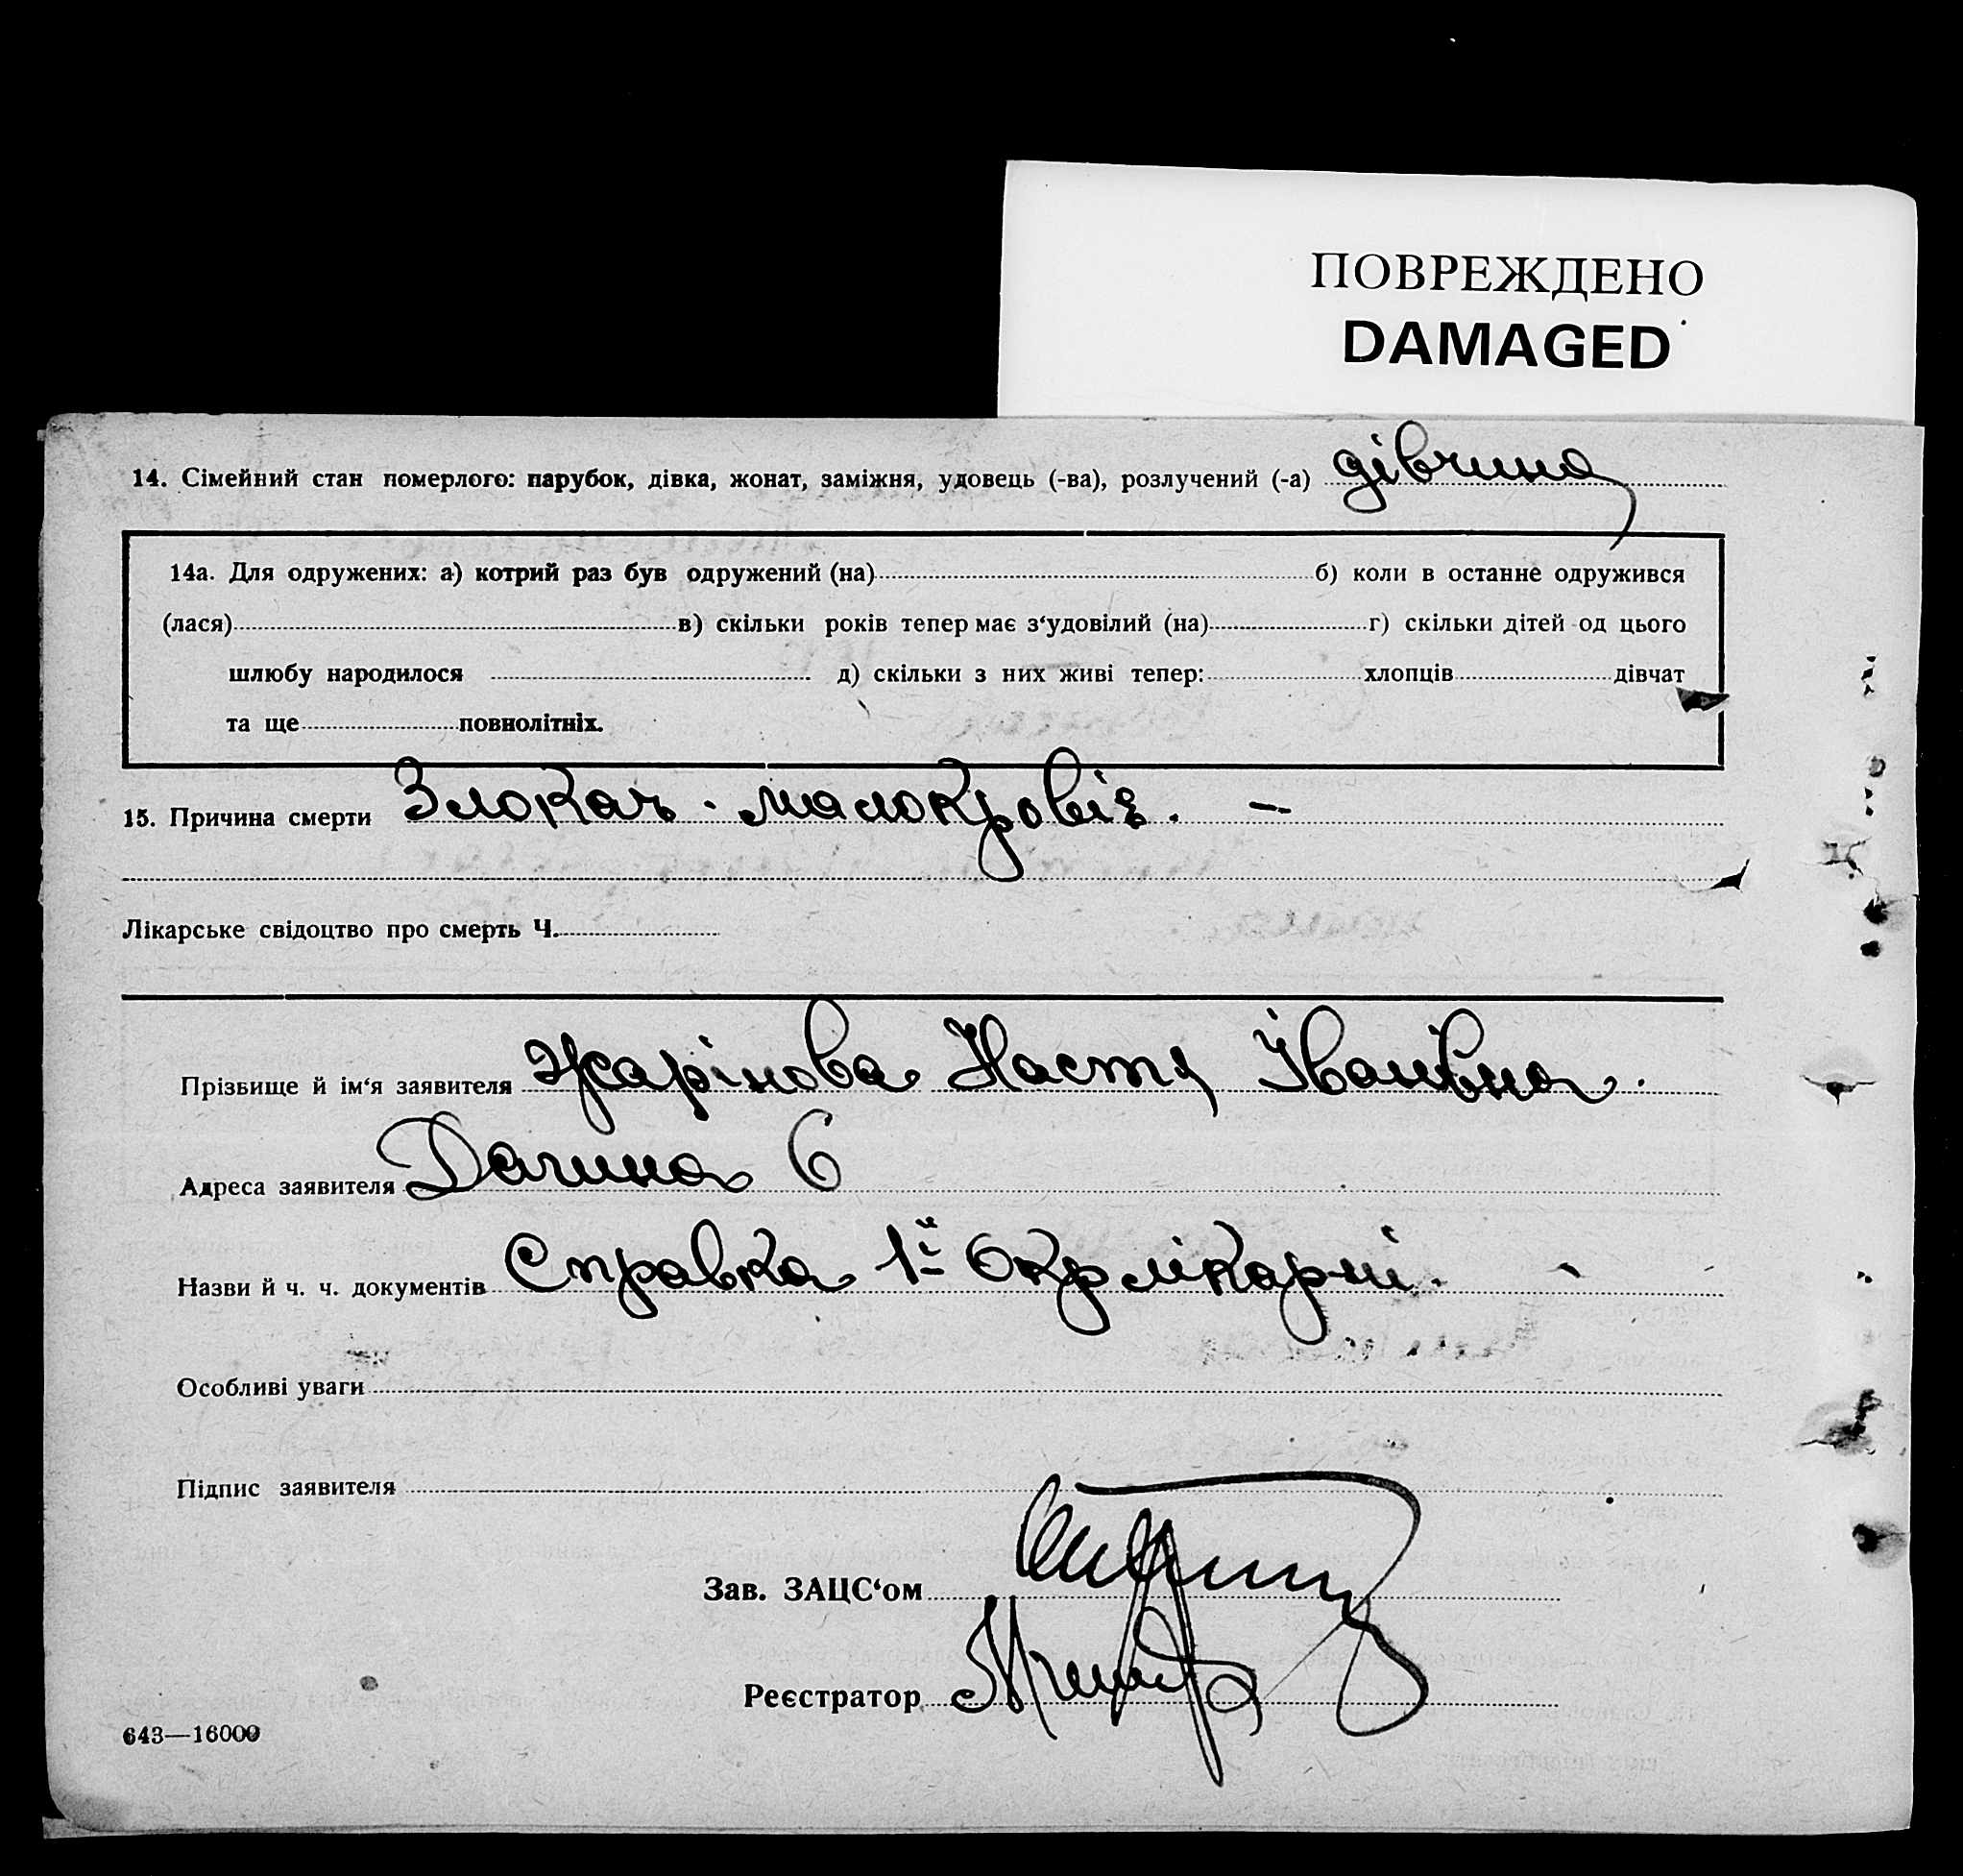 ПОВРЕЖДЕНО
DAMAGED
14. Сімейний стан померлого: парубок, дівка, жонат, заміжня, удовець (-ва), розлучений (-а) дівчина
14а. Для одружених: а) котрий раз був одружений (на) б) коли в останнє одружився
(лася) в) скільки років тепер має з‘удовілий (на) г) скільки дітей од цього
шлюбу народилося д) скільки з них живі тепер: хлопців дівчат
та ще повнолітніх.
15. Причина смерти Злокач. малокровіе. –
Лікарське свідоцтво про смерть Ч.
Прізбище й ім‘я заявителя Жарінова Настя Іванівна.
Адреса заявителя Дачина 6
Назви й ч. ч. документів Справка 1ї Окрлікарні.
Особливі уваги
Підпис заявителя
Зав. ЗАЦС‘ом
Реєстратор
643—16000